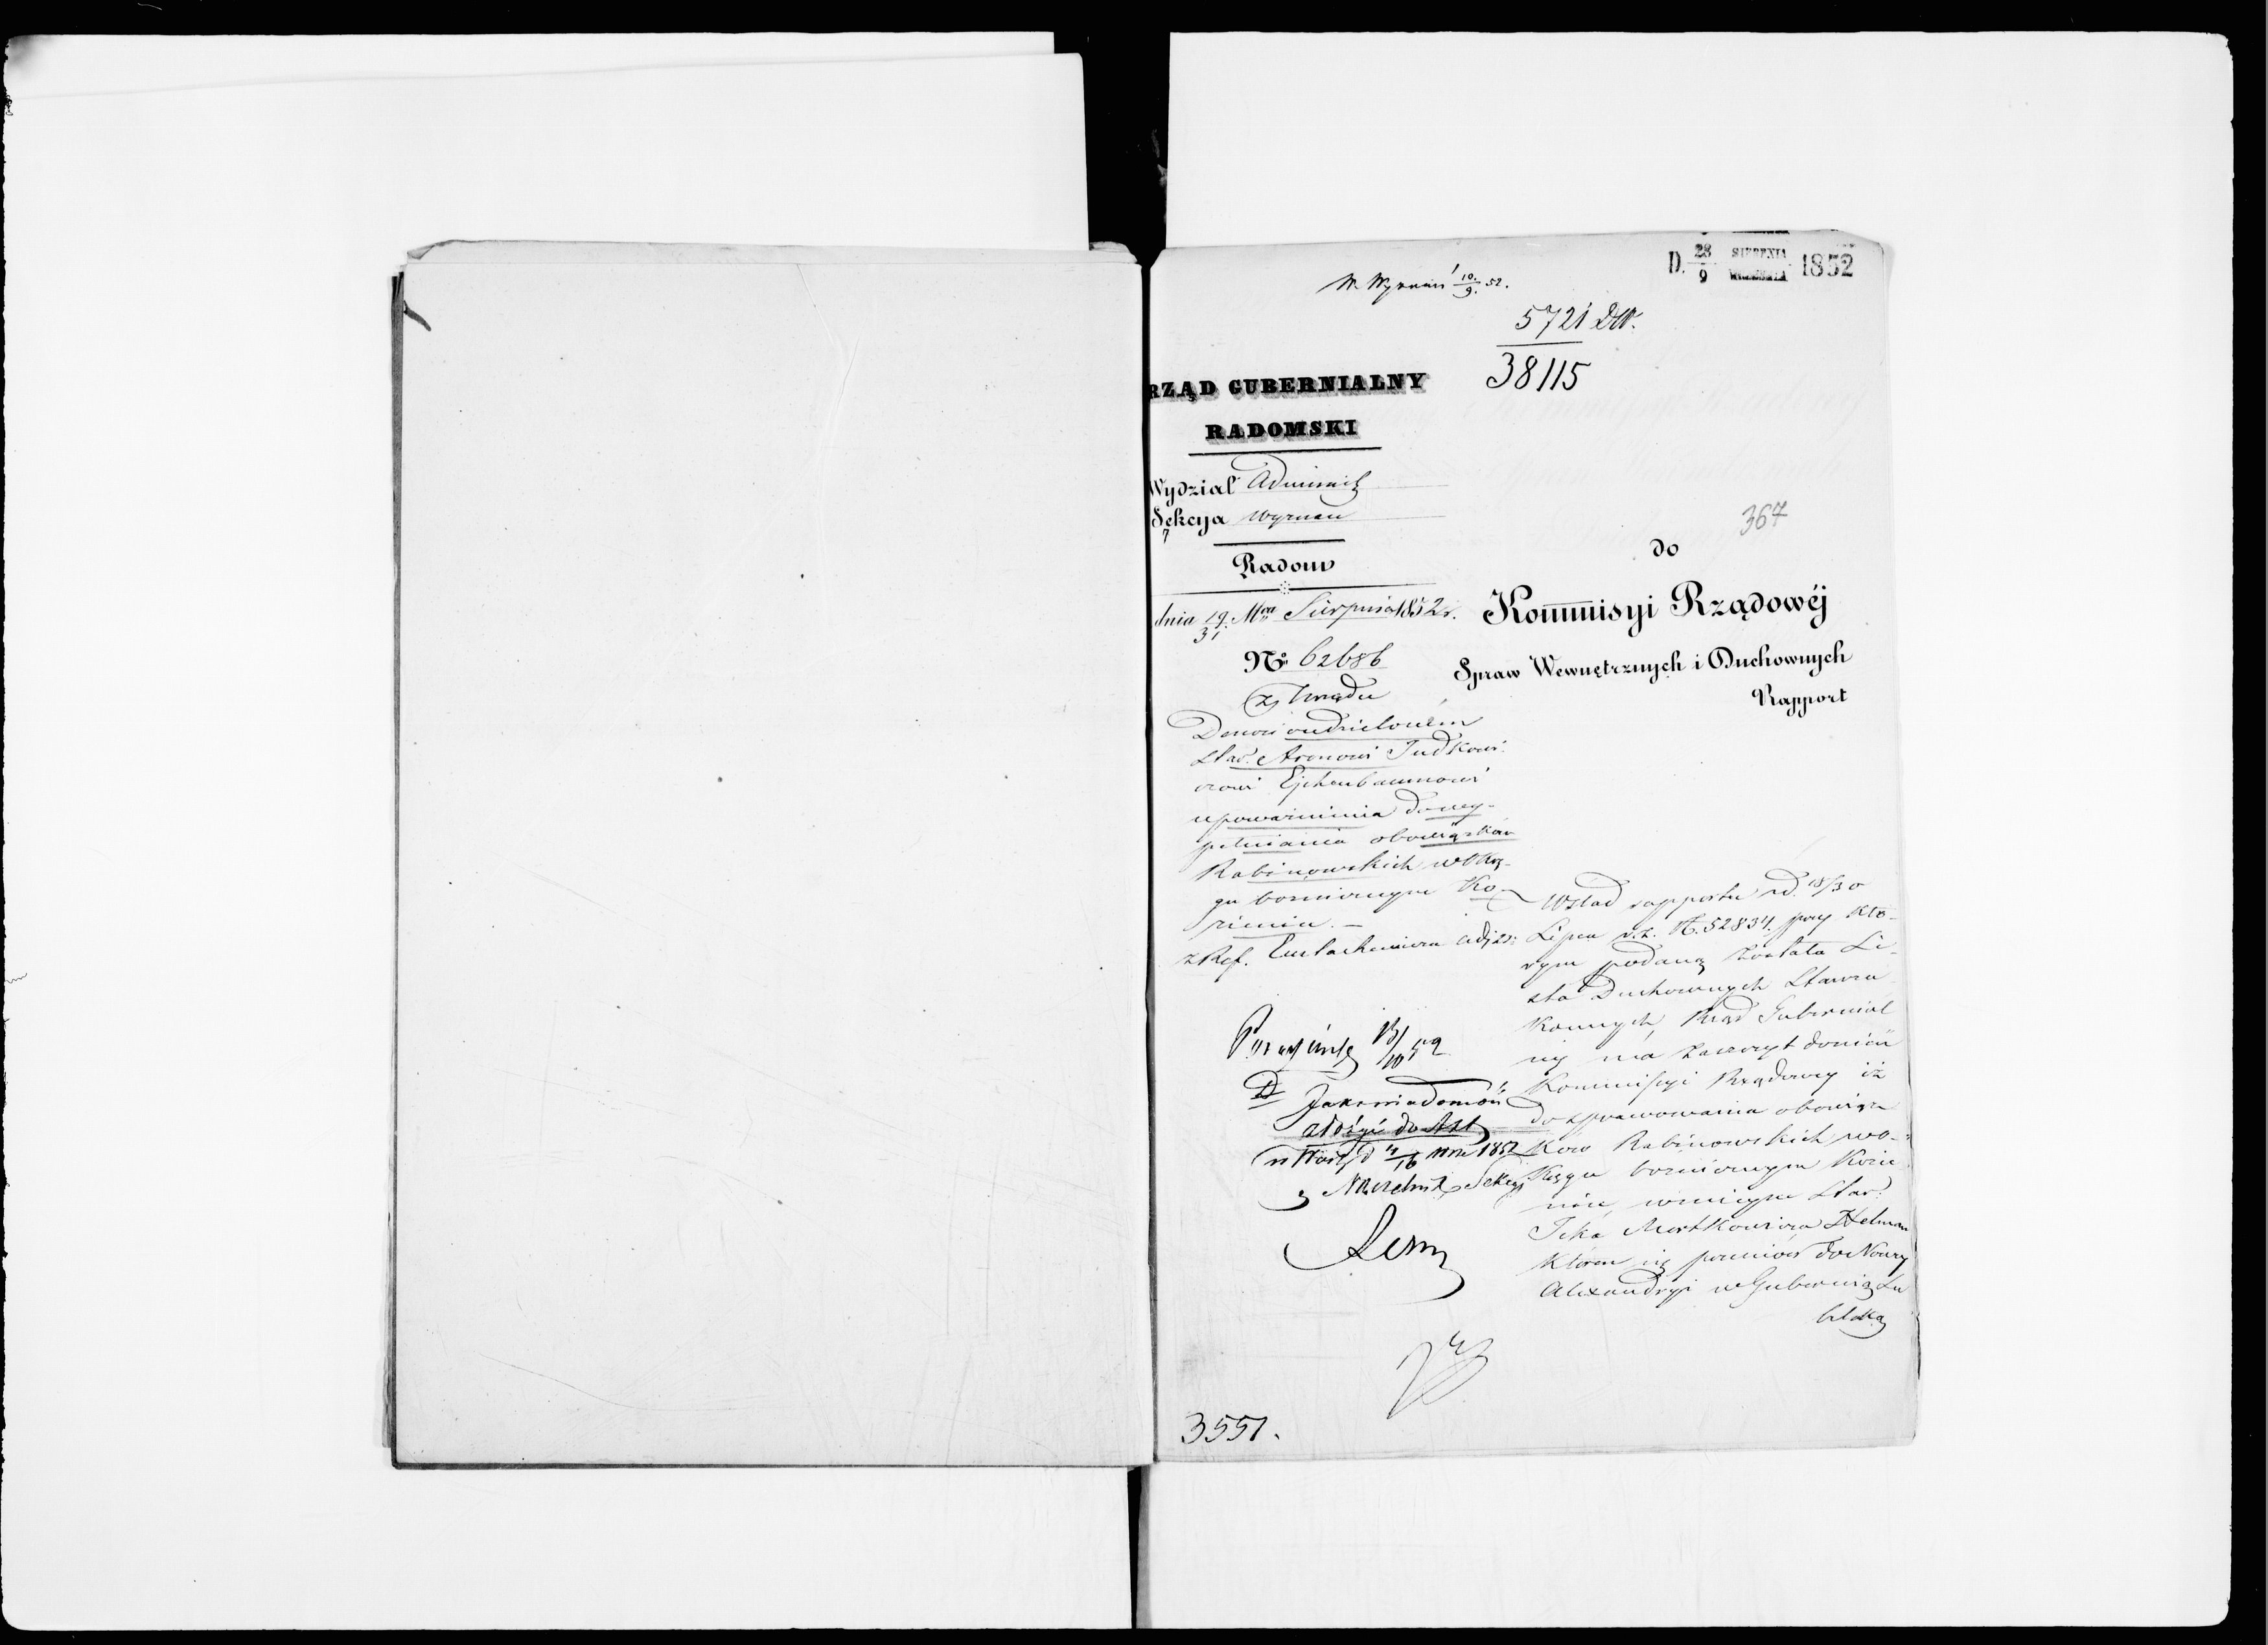 D. 28/9 SIERPNIA WRZEŚNIA 1852
W. Wyznań 10/9. 52.
5721 DW.
38115
RZĄD GUBERNIALNY
RADOMSKI
Wydział Administ
Sekcya Wyznań
7
Radom
dnia 19/31 Mca Sierpnia 1852 r.
No 62686
Z Urzędu
Donosi o udzieloném
Star. Aronowi Judkowi-
czowi Ejchenbaumowi
upoważnienia do wy-
pełniania obowiązków
Rabinowskich w Okrę-
gu bożniczym Ko-
zienice. –
z Ref.
367
do
Kommisyi Rządowéj
Spraw Wewnętrznych i Duchownych
Rapport
W ślad rapportu z d. 18/30
Lipca r. z. N. 52834. przy któ-
rym podaną została Li-
sta Duchownych Staroza-
konnych, Rząd Gubernial
ny ma zaszczyt donieść
Kommissyi Rządowey iż
do sprawowania obowiąz
ków Rabinowskich w O-
kręgu bożniczym Kozie
nice, w miejsce Star.
Icka Mortkowicza Helman
któren się przeniósł do Nowey
Alexandryi w Gubernią Lu
belską
13/10 52
Jako wiadomość
złożyć do Akt
1852
Naczelnik Sekcyi
3551.